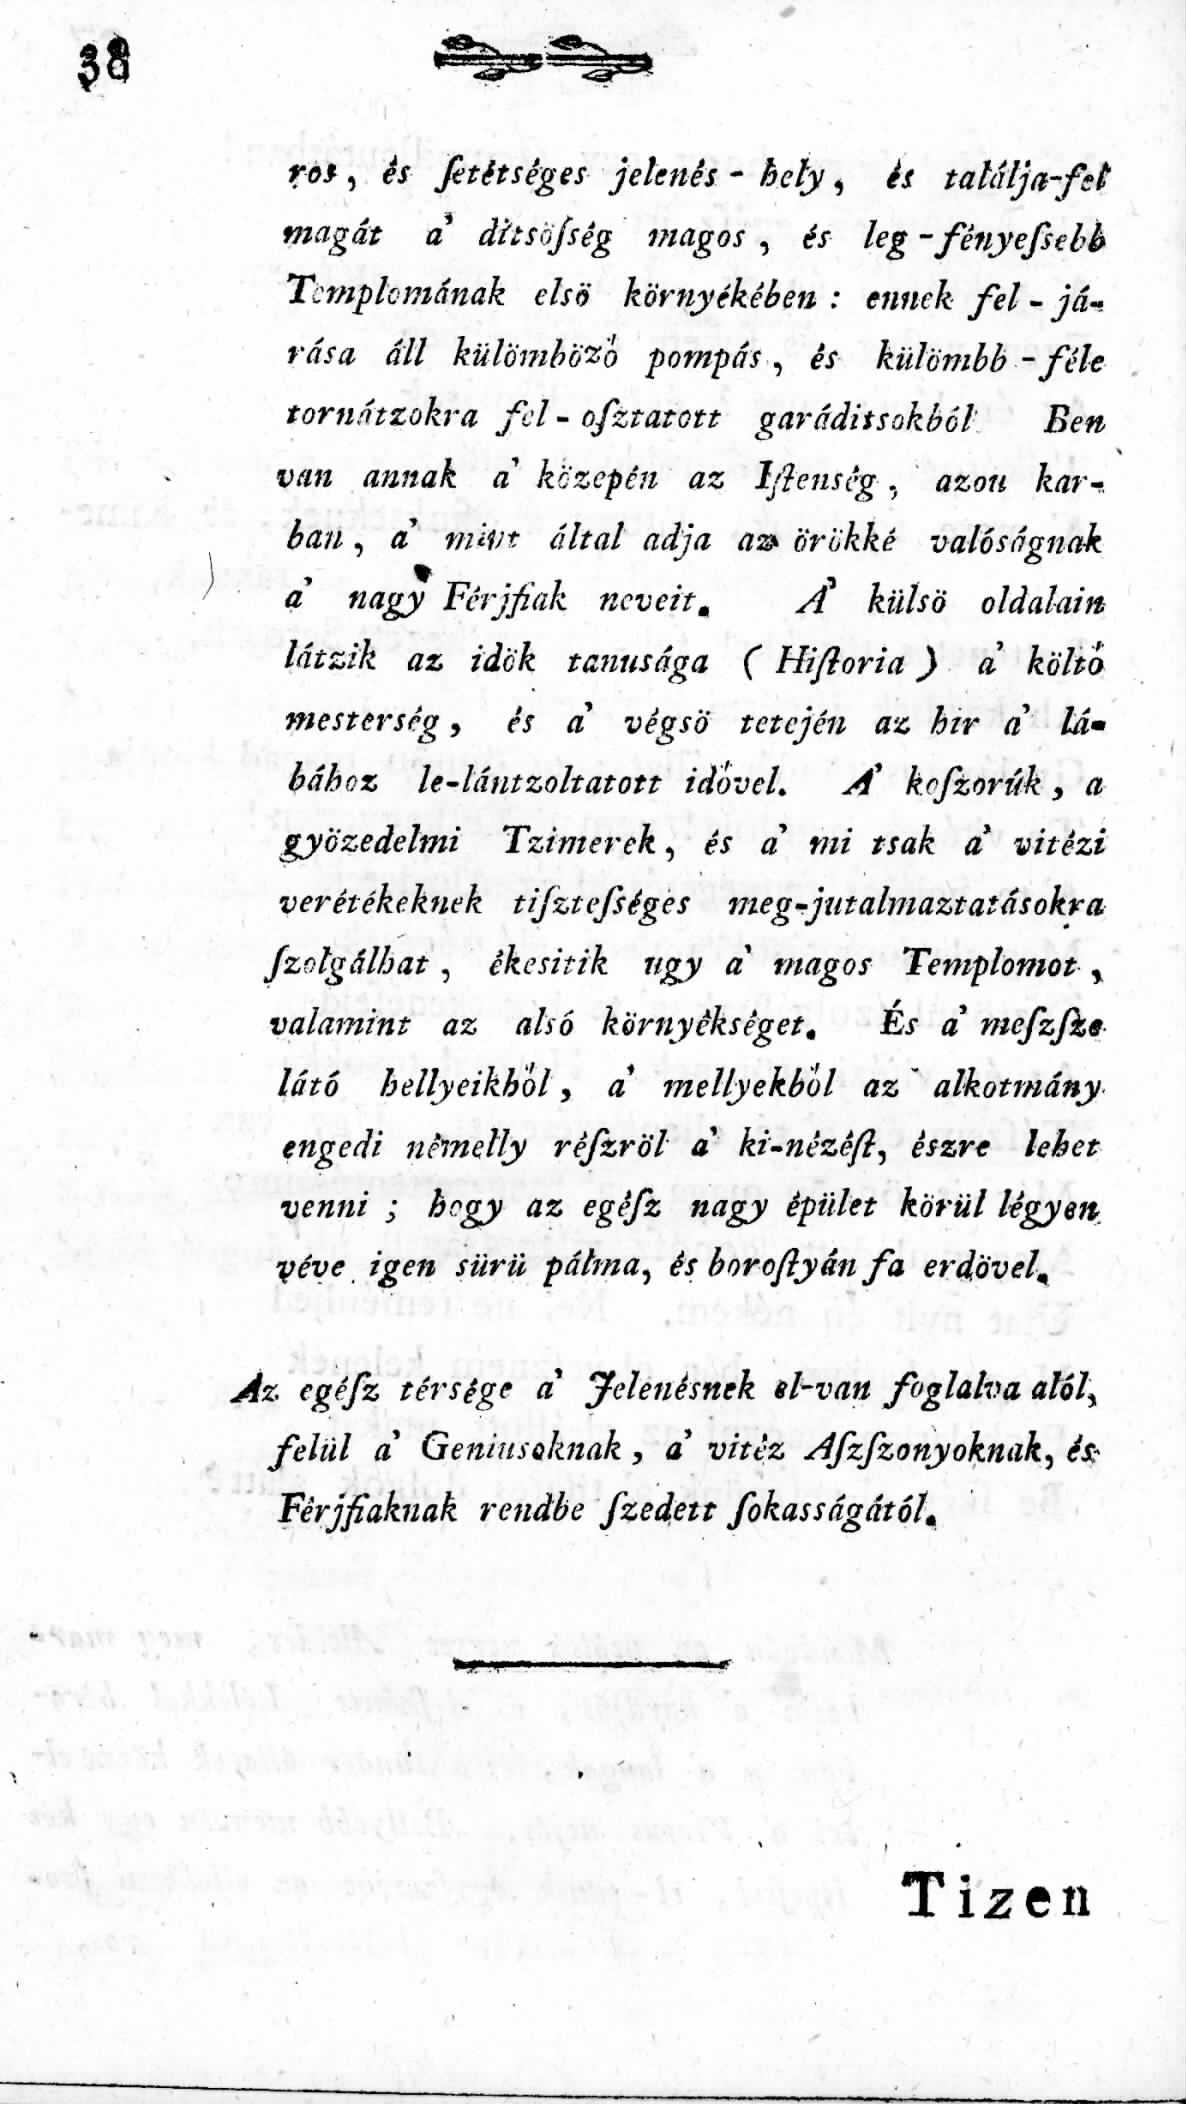 38
ros, és ſetétséges jelenés - hely, és találja-fel
magát a' ditsöſség magos, és leg - fényeſsebb
Templomának elsö környékében : ennek fel - já-
rása áll külömböző pompás, és külömbb - féle
tornátzokra fel - oſztatott garáditsokból Ben
van annak a' közepén az Iſtenség, azon kar-
ban, a' mint által adja az örökké valóságnak
a' nagy Férjfiak neveit. A' külsö oldalain
látzik az idök tanusága ( Hiſtoria ) a' költő
mesterség, és a' végsö tetején az hir a' lá-
bához le-lántzoltatott idővel. A' koſzorúk, a
gyözedelmi Tzimerek, és a' mi tsak a' vitézi
verétékeknek tiſzteſséges meg-jutalmaztatásokra
ſzolgálhat, ékesitik ugy a' magos Templomot,
valamint az alsó környékséget. És a' meſzſze
látó hellyeikből, a' mellyekből az alkotmány
engedi némelly réſzröl a' ki-nézéſt, észre lehet
venni ; hogy az egéſz nagy épület körül légyen
véve igen sürü pálma, és boroſtyán fa erdövel.
Az egéſz térsége a' Jelenésnek el-van foglalva alól,
felül a' Geniusoknak, a' vitéz Aſzſzonyoknak, és
Férjfiaknak rendbe ſzedett ſokasságától.
Tizen